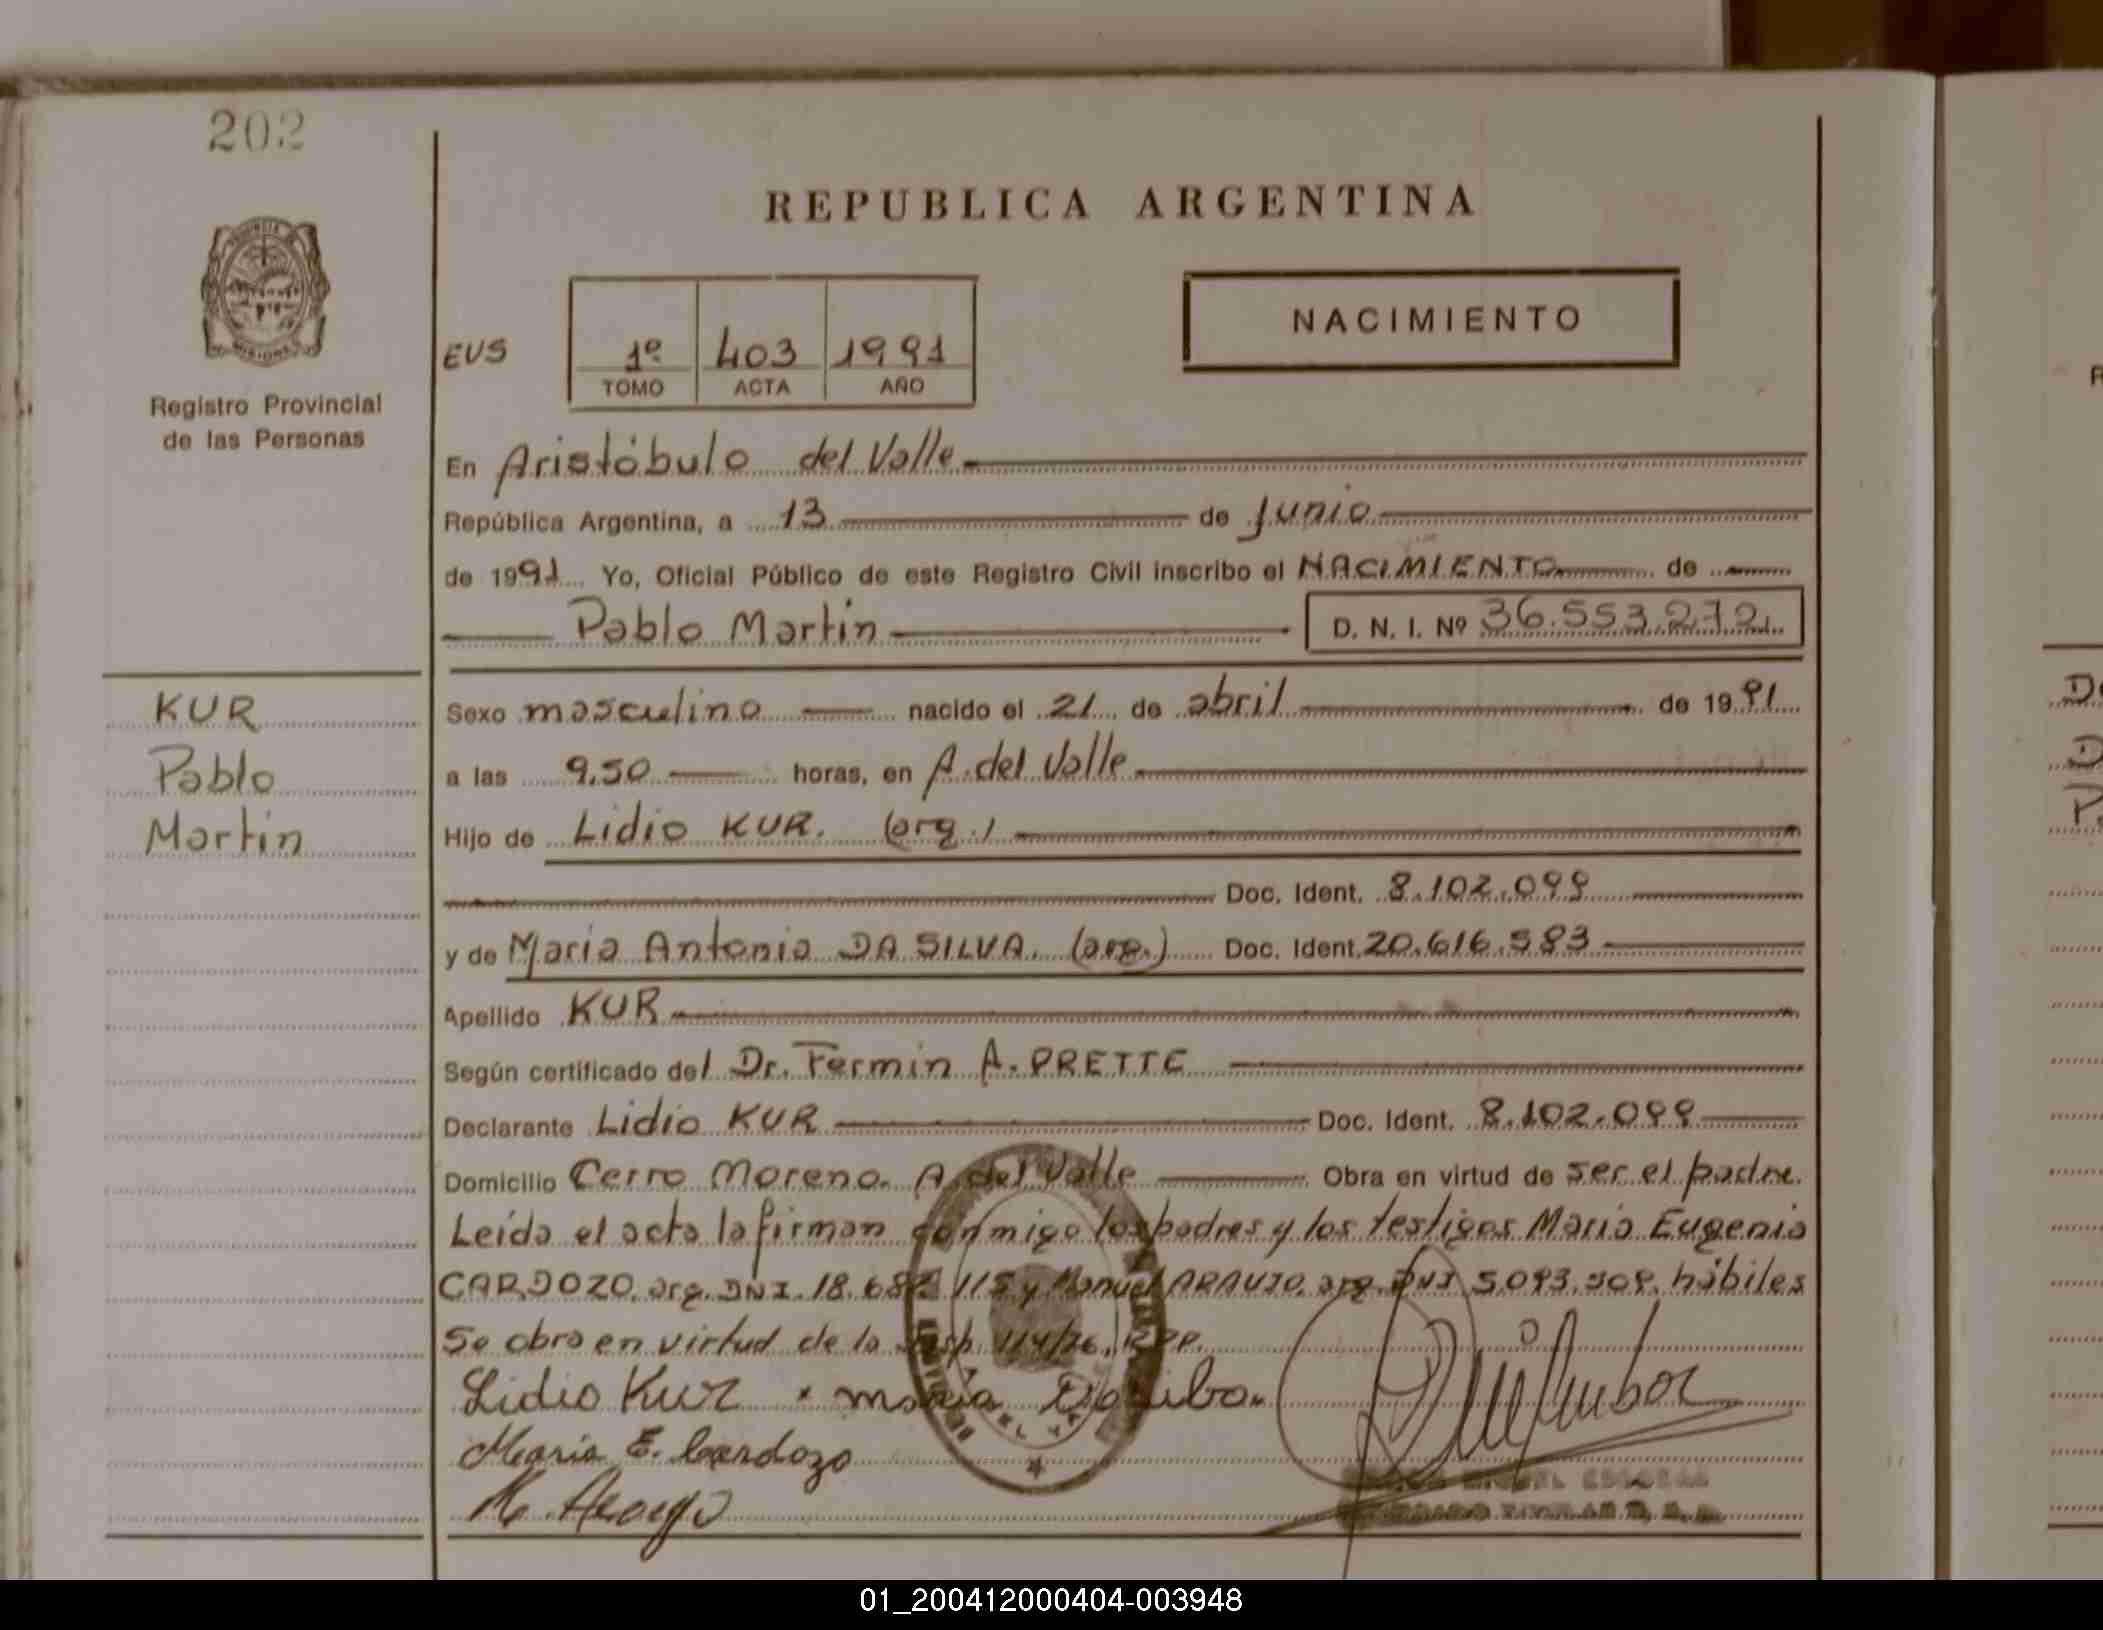 202
REPUBLICA ARGENTINA
NACIMIENTO
EUS 1º 403 1991
TOMO ACTA AÑO
Registro Provincial
de las Personas
En Aristóbulo del Valle
República Argentina, a 13 de Junio
de 1991 Yo, Oficial Público de este Registro Civil inscribo el NACIMIENTO de
Pablo Martin D. N. I. Nº 36.553.272
KUR
Pablo
Martin
Sexo masculino nacido el 21 de abril de 1991
a las 9.50 horas, en A. del Valle
Hijo de Lidio KUR. (arg.)
Doc. Ident. 8.102.099
y de Maria Antonia DA SILVA. (arg.) Doc. Ident. 20.616.583
Apellido KUR
Según certificado del Dr. Fermin A. PRETTE
Declarante Lidio KUR Doc. Ident. 8.102.099
Domicilio Cerro Moreno. A. del Valle Obra en virtud de ser el padre.
Leída el acta la firman conmigo los padres y los testigos Maria Eugenia
CARDOZO. arg. DNI. 18.682.115 y Manuel ARAUJO. arg. DNI 5.093.909. hábiles
Se obra en virtud de la 114/76.
Lidio Kur Maria
Maria E. Cardozo
M. Araujo
01_200412000404-003948